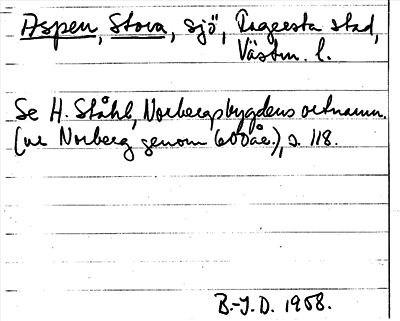 Aspen, Stora, sjö, Fagersta stad,
Västm. l.
Se H. Ståhl, Norbergsbygdens ortnamn.
(ur Norberg genom 600 år.), s. 118.
B.-I.D. 1958.